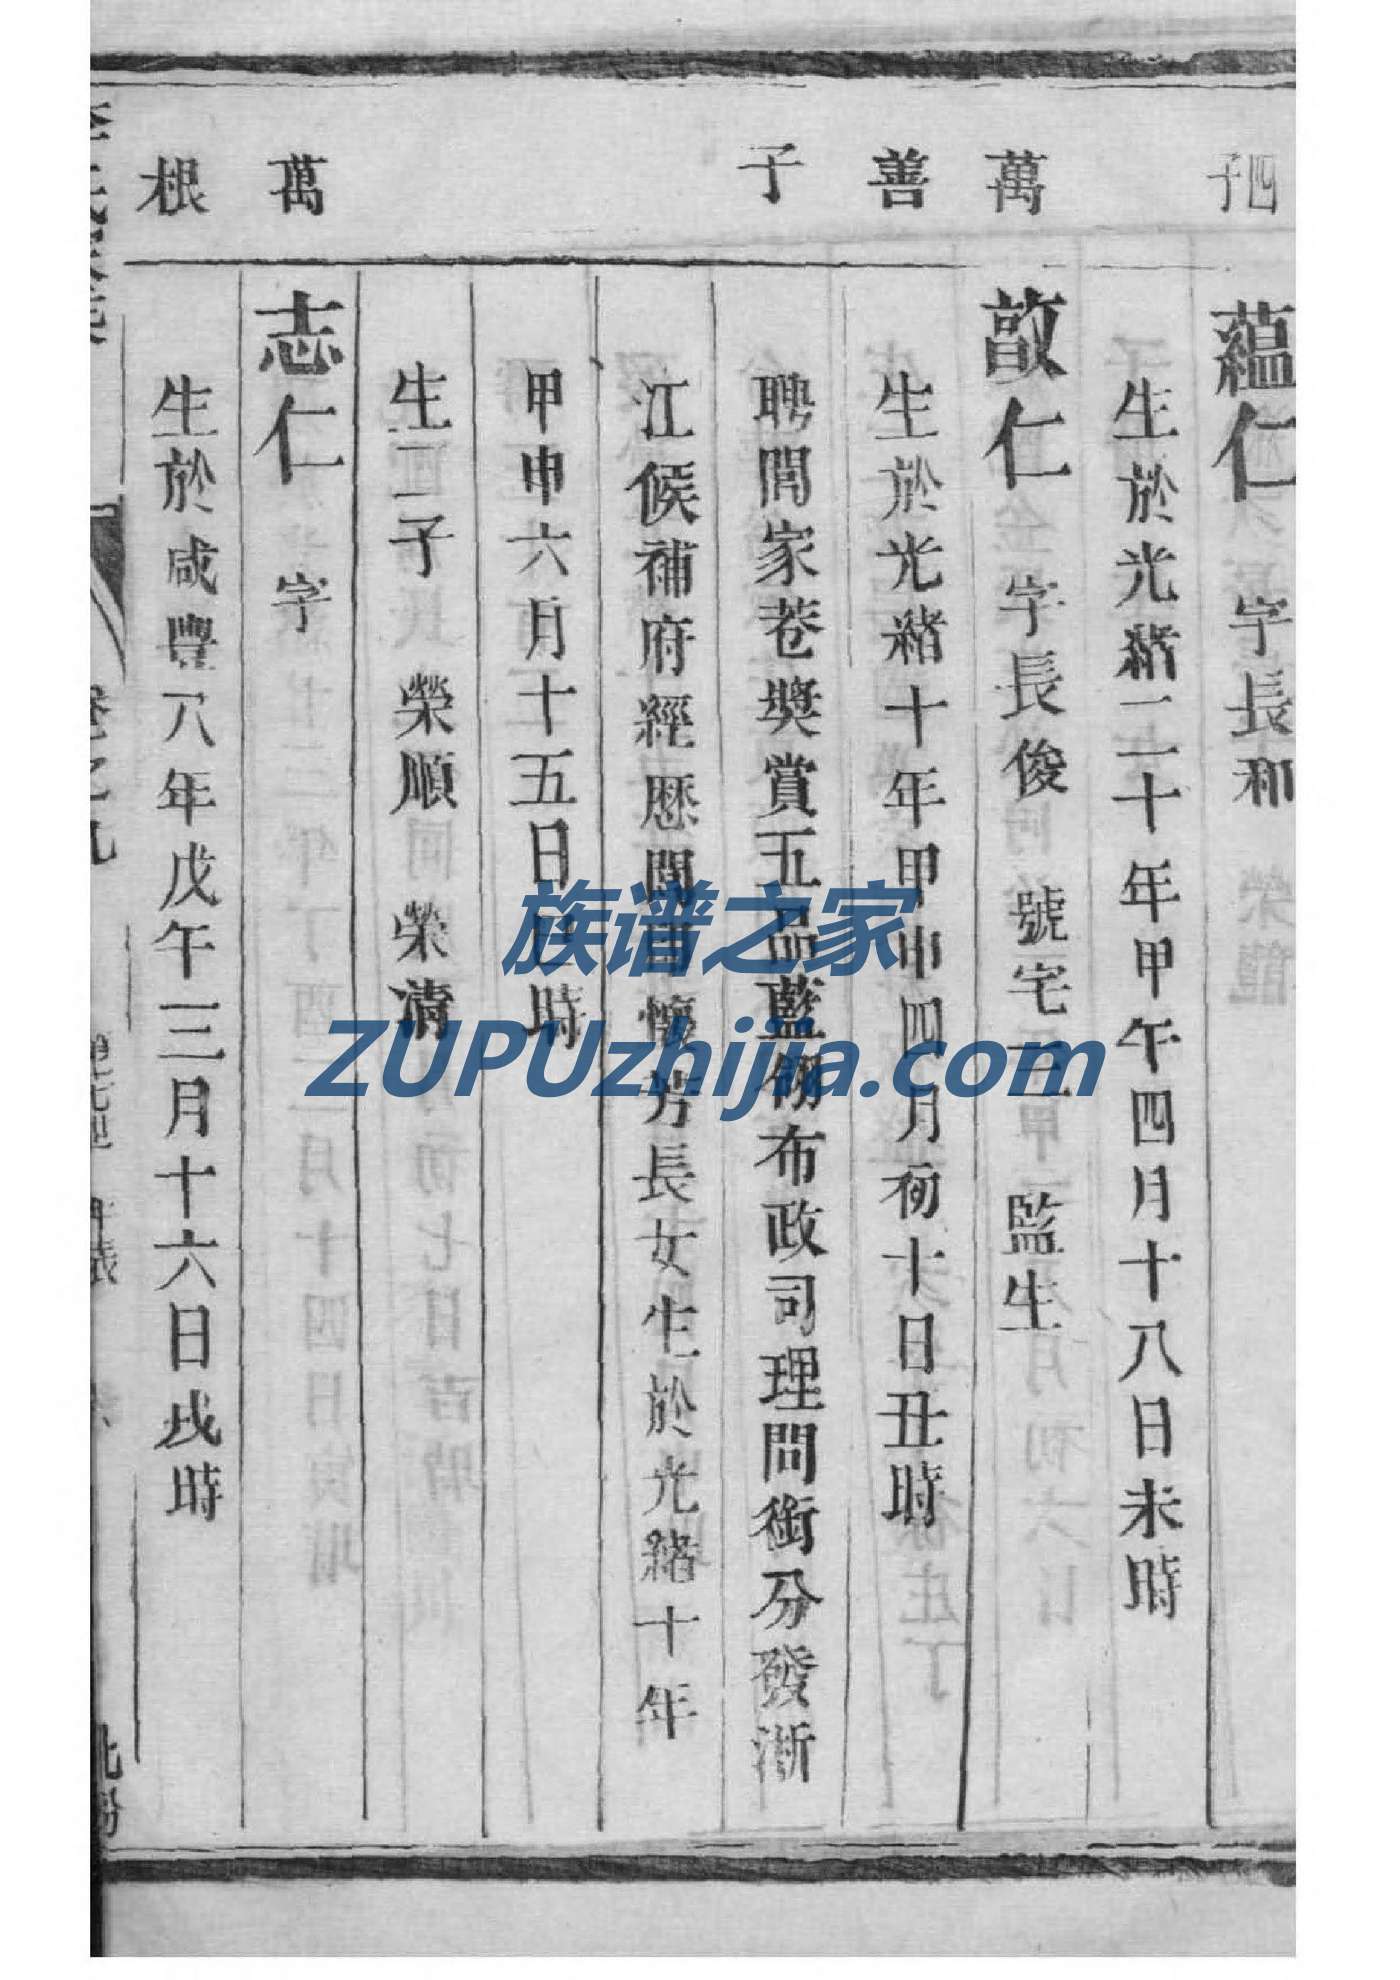 四子
蘊仁 字長和
生於光緒二十年甲午四月十八日未時
萬善子
啟仁 字長俊 號宅三 監生
生於光緒十年甲申四月初十日丑時
聘閻家巷奬賞五品藍翎布政司理問銜分發浙
江候補府經歷閻 懷芳長女生於光緒十年
甲申六月十五日巳時
生二子 榮順 榮清
萬根
志仁 字
生於咸豐八年戊午三月十六日戌時
卷之九
族谱之家
ZUPUzhijia.com